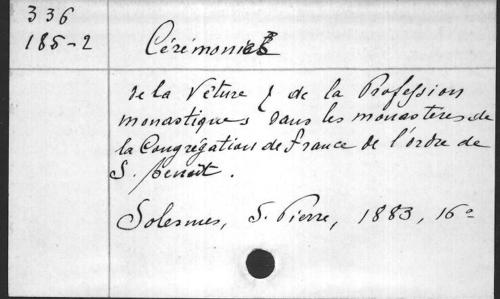 336
185-2
Cérémonial
de la Vêture & de la Profession
monastiques dans les monastères de
la Congrégation de France de l'ordre de
S. Benoît.
Solesmes, S. Pierre, 1883, 16°